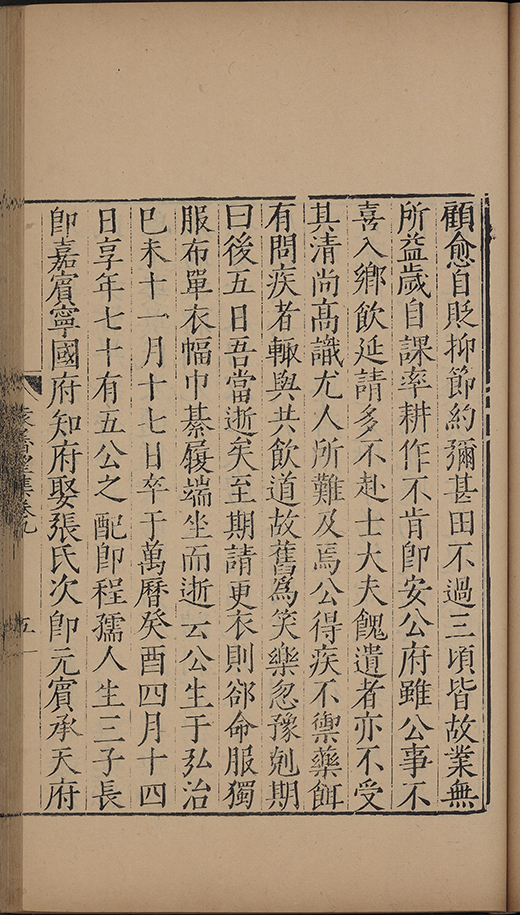 顧愈自貶抑節約彌甚田不過三頃皆故業無
所益歲自課率耕作不肯卽安公府雖公事不
喜入鄉飲延請多不赴士大夫餽遺者亦不受
其清尚高識尤人所難及焉公得疾不禦藥餌
有問疾者輙與共飲道故舊爲笑樂忽豫剋期
曰後五日吾當逝矣至期請更衣則郤命服獨
服布單衣幅巾綦履端坐而逝云公生于弘治
巳未十一月十七日卒于萬曆癸酉四月十四
日享年七十有五公之配卽程孺人生三子長
卽嘉賓寧國府知府娶張氏次卽元賓承天府
集卷九
五